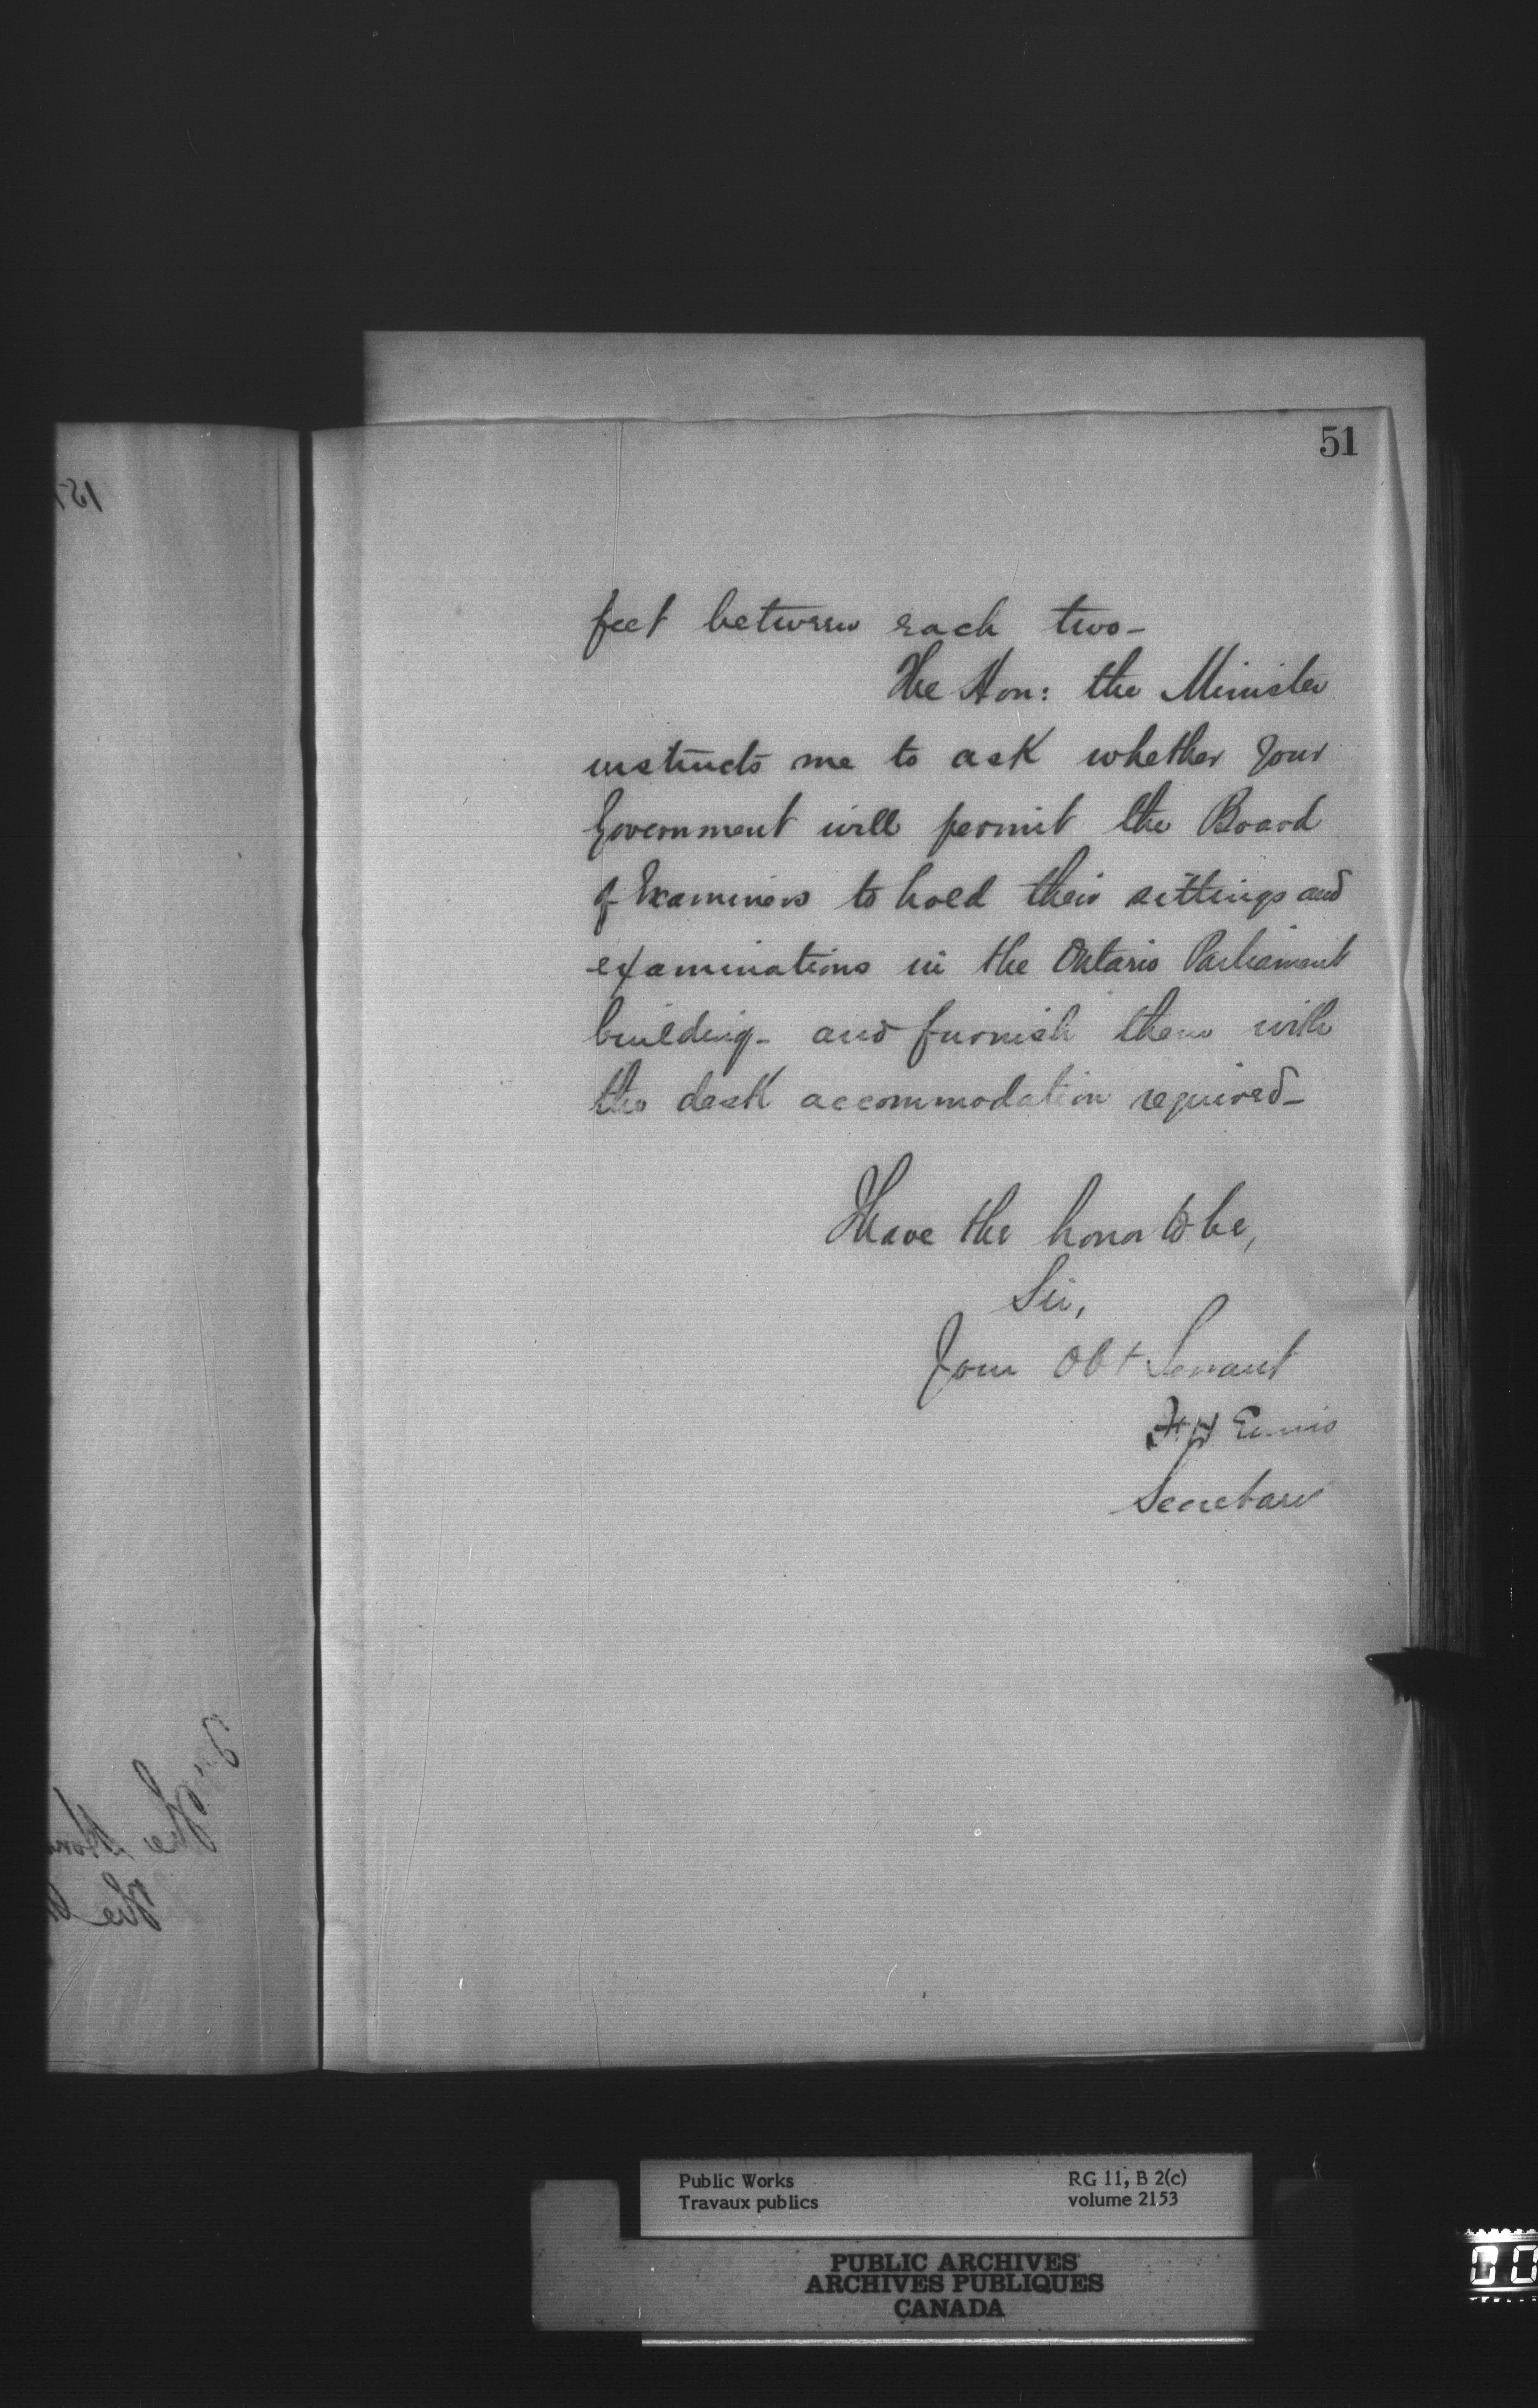 51
feet between each two-
The Hon: the Minister
instructs me to ask whether your
Government will permit the Board
of Examiners to hold their sittings and
examinations in the Ontario Parliament
building- and furnish them with
the desk accommodation required-
I have the honor to be,
Sir,
Your Obt Servant
F H Ennis
Secretary
Public Works
Travaux publics
RG 11, B 2(c)
volume 2153
PUBLIC ARCHIVES
ARCHIVES PUBLIQUES
CANADA
00